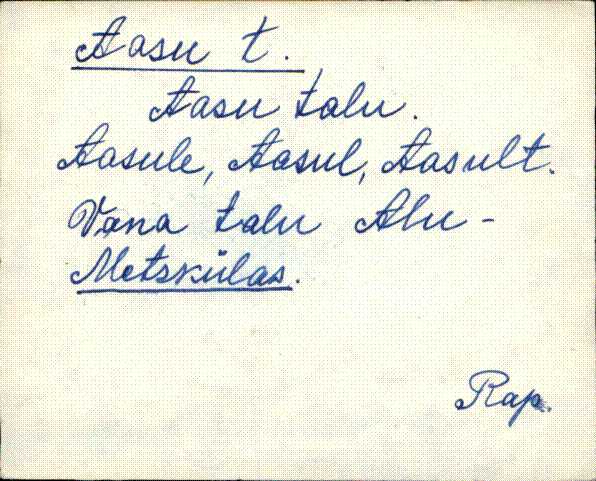 Aasu t.
Aasu talu.
Aasule, Aasul, Aasult.
Vana talu Alu-
Metskülas.
Rap.